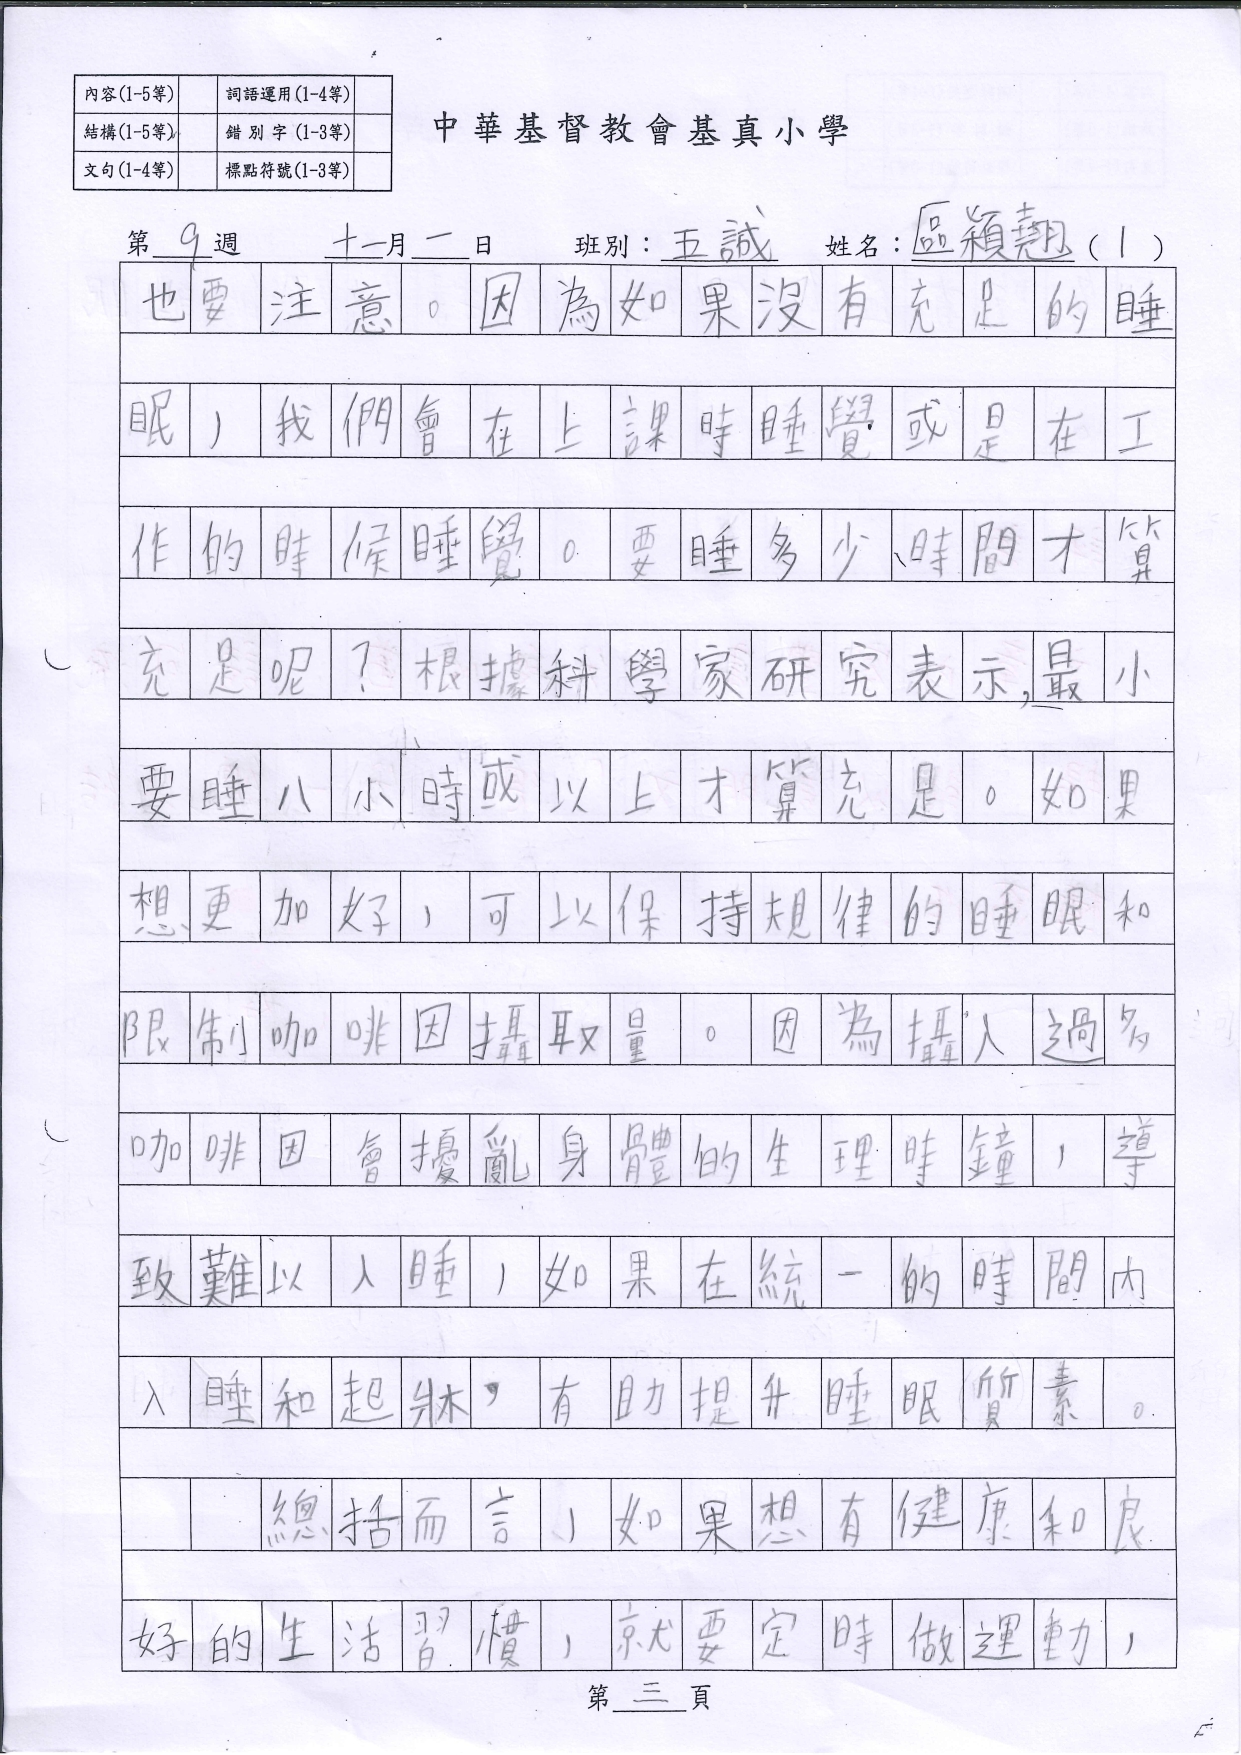 內容(1-5等) 詞語運用(1-4等)
結構(1-5等) 錯別字(1-3等)
文句(1-4等) 標點符號(1-3等)
中華基督教會基真小學
第9週 十一月一日 班別：五誠 姓名：區穎翹(1)
也要注意。因為如果沒有充足的睡
眠，我們會在上課時睡覺或是在工
作的時候睡覺。要睡多少、時間才算
充足呢？根據科學家研究表示，最小
要睡八小時或以上才算充足。如果
想更加好，可以保持規律的睡眠和
限制咖啡因攝取量。因為攝入過多
咖啡因會擾亂身體的生理時鐘，導
致難以入睡，如果在統一的時間內
入睡和起牀，有助提升睡眠質素。
總括而言，如果想有健康和良
好的生活習慣，就要定時做運動，
第三頁